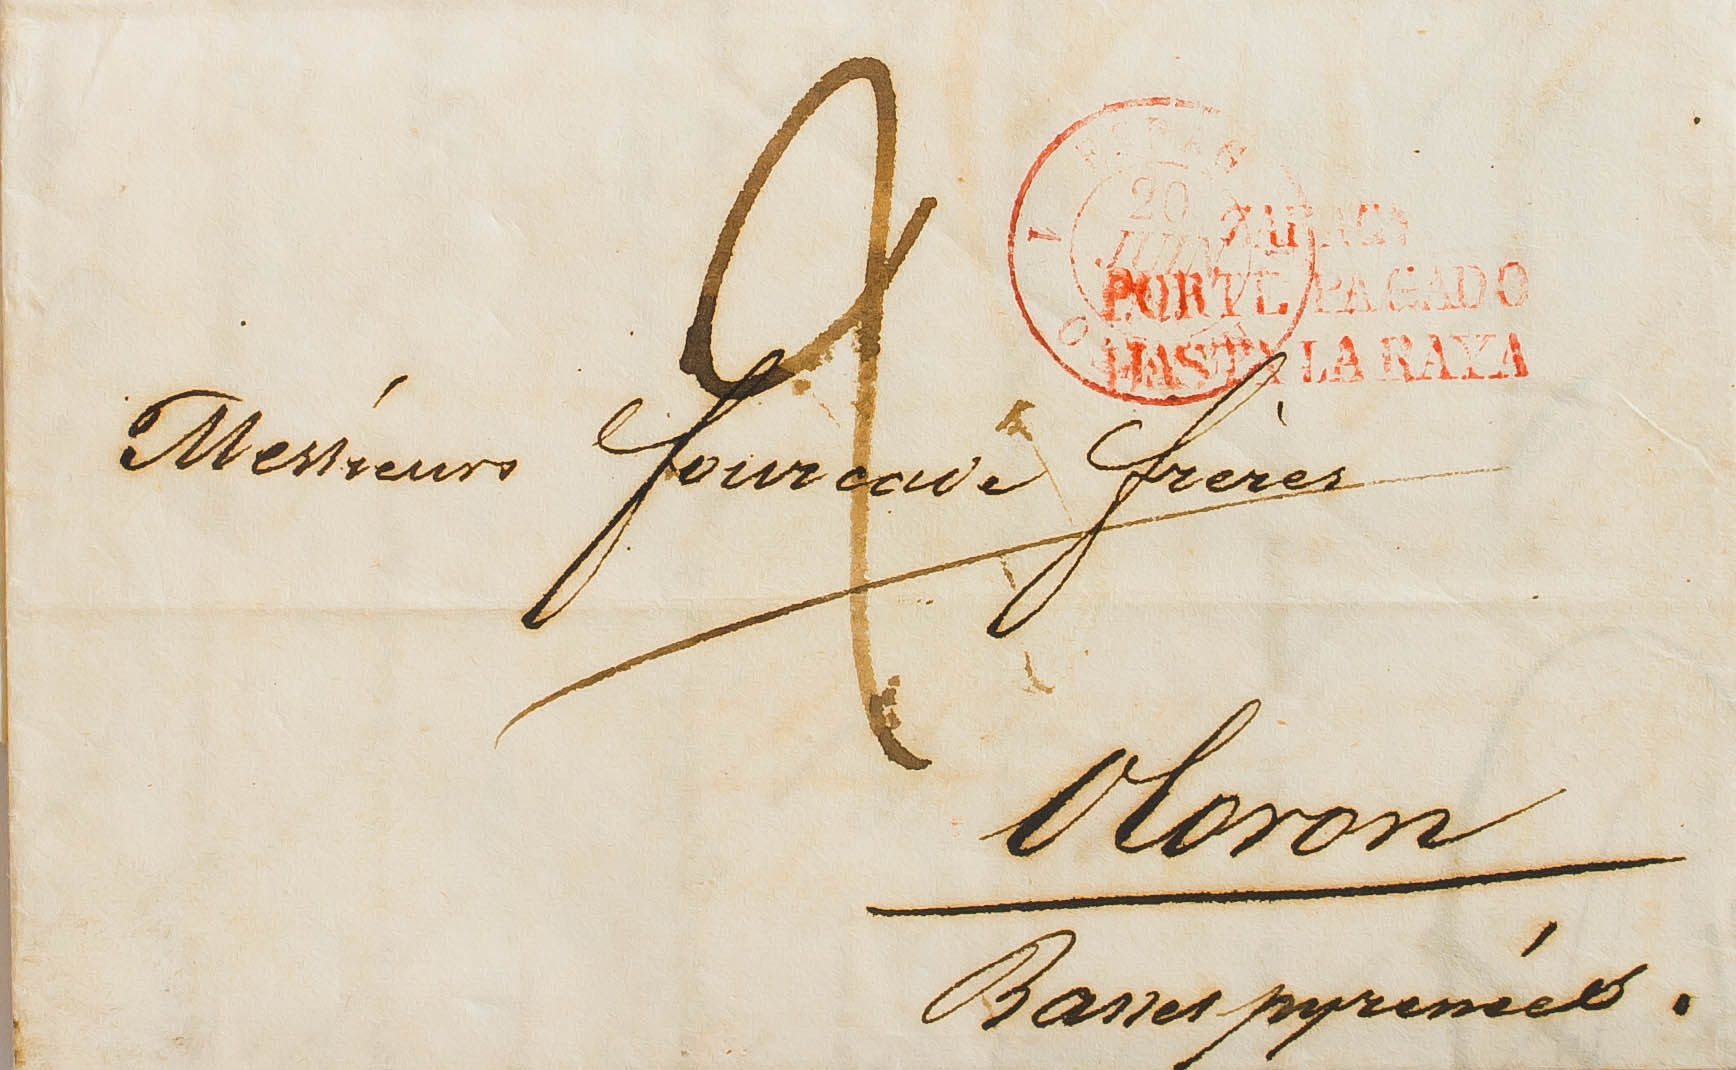 20
JUIN
ZARAGA
PORTE PAGADO
HASTA LA RAYA
2
Messieurs fourcade frères
Oloron
Basses pyrenées.